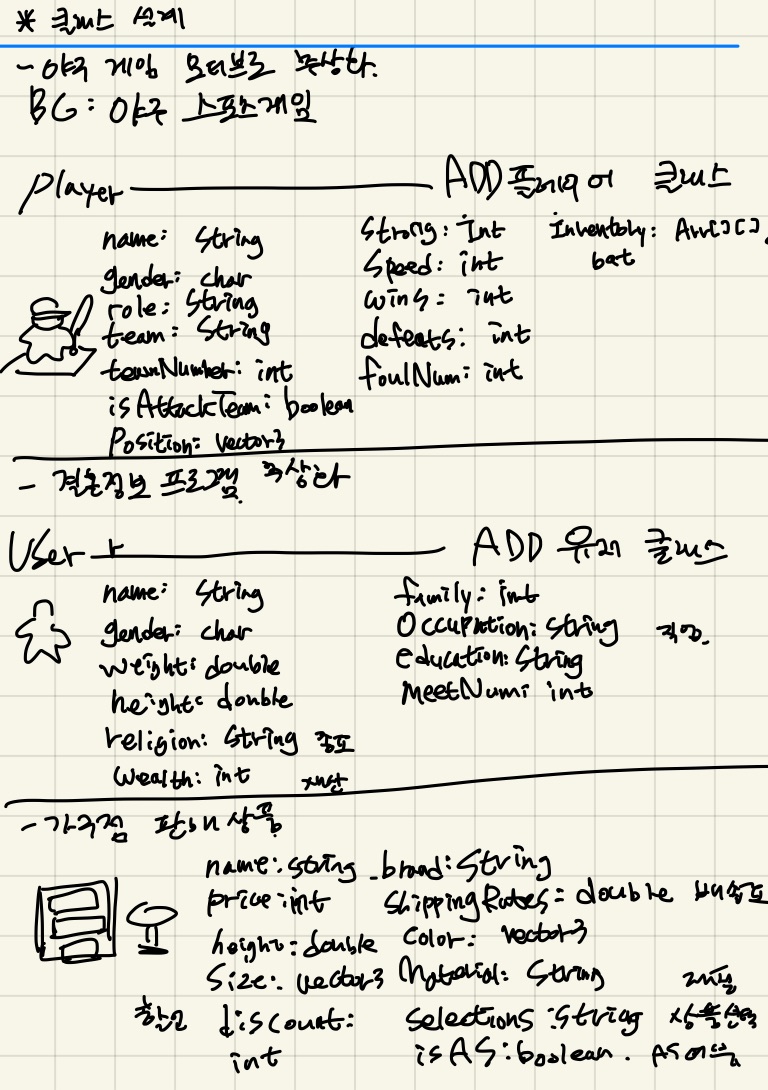 * 클래스 설계
- 야구 게임 모티브로 추상화.
BG: 야구 스포츠게임
Player ADD 플레이어 클래스
name: String
gender: char
role: String
team: String
teamNumber: int
isAttackTeam: boolean
Position: vector3
Strong: Int
Speed: int
wins: int
defeats: int
foulNum: int
Inventory: Arr[][].
bat
- 결혼정보 프로그램 추상화
User ADD 유저 클래스
name: String
gender: char
weight: double
height: double
religion: String 종교
Wealth: int 재산
family: int
Occupation: String 직업.
education: String
MeetNum: int
- 가구점 판매 상품
name: String
price: int
height: double
Size: vector3
할인 discount:
int
brand: String
ShippingRates: double 배송료
Color: vector3
Material: String 재질
selections: String 상품선택
isAS: boolean. AS여부